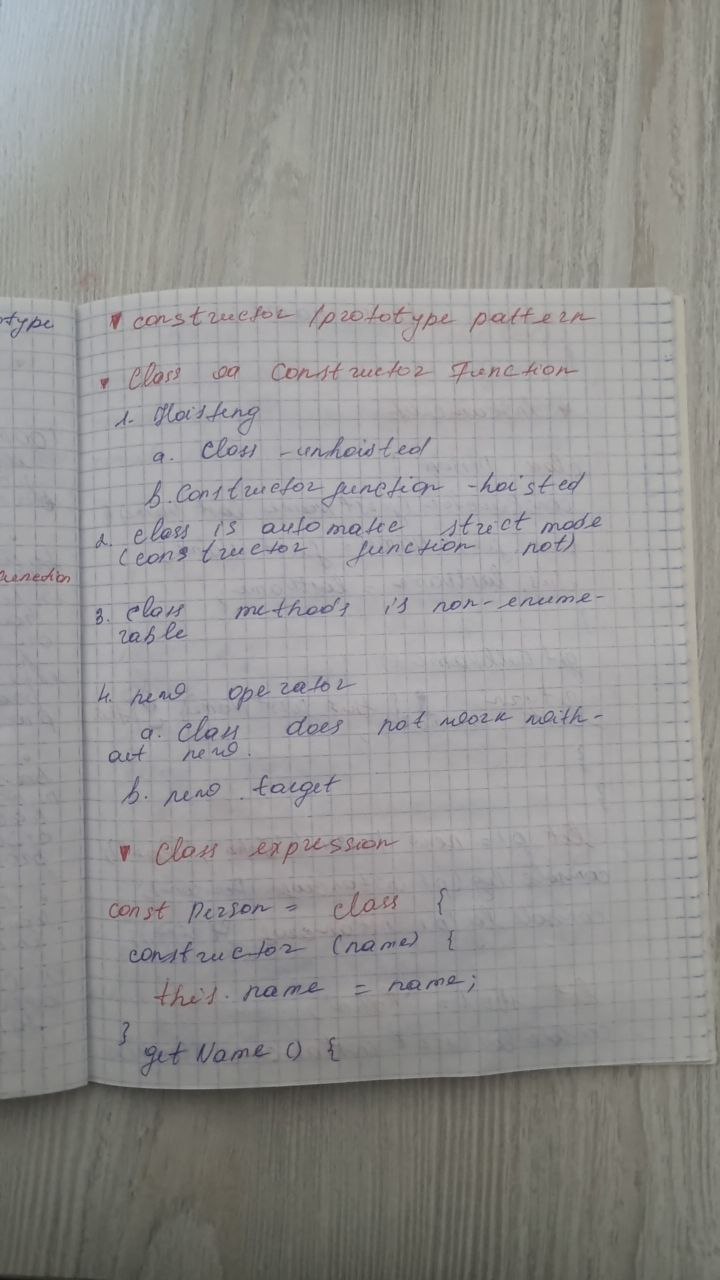 otype
▾ constructor / prototype pattern
▾ Class va Constructor Function
1. Hoisting
a. Class - unhoisted
b. Constructor function - hoisted
2. class is automatic strict mode
(constructor function not)
unction
3. class methods is non-enume-
rable
4. new operator
a. Class does not work with-
out new.
b. new.target
▾ Class expression
const Person = class {
constructor (name) {
this.name = name;
}
getName () {